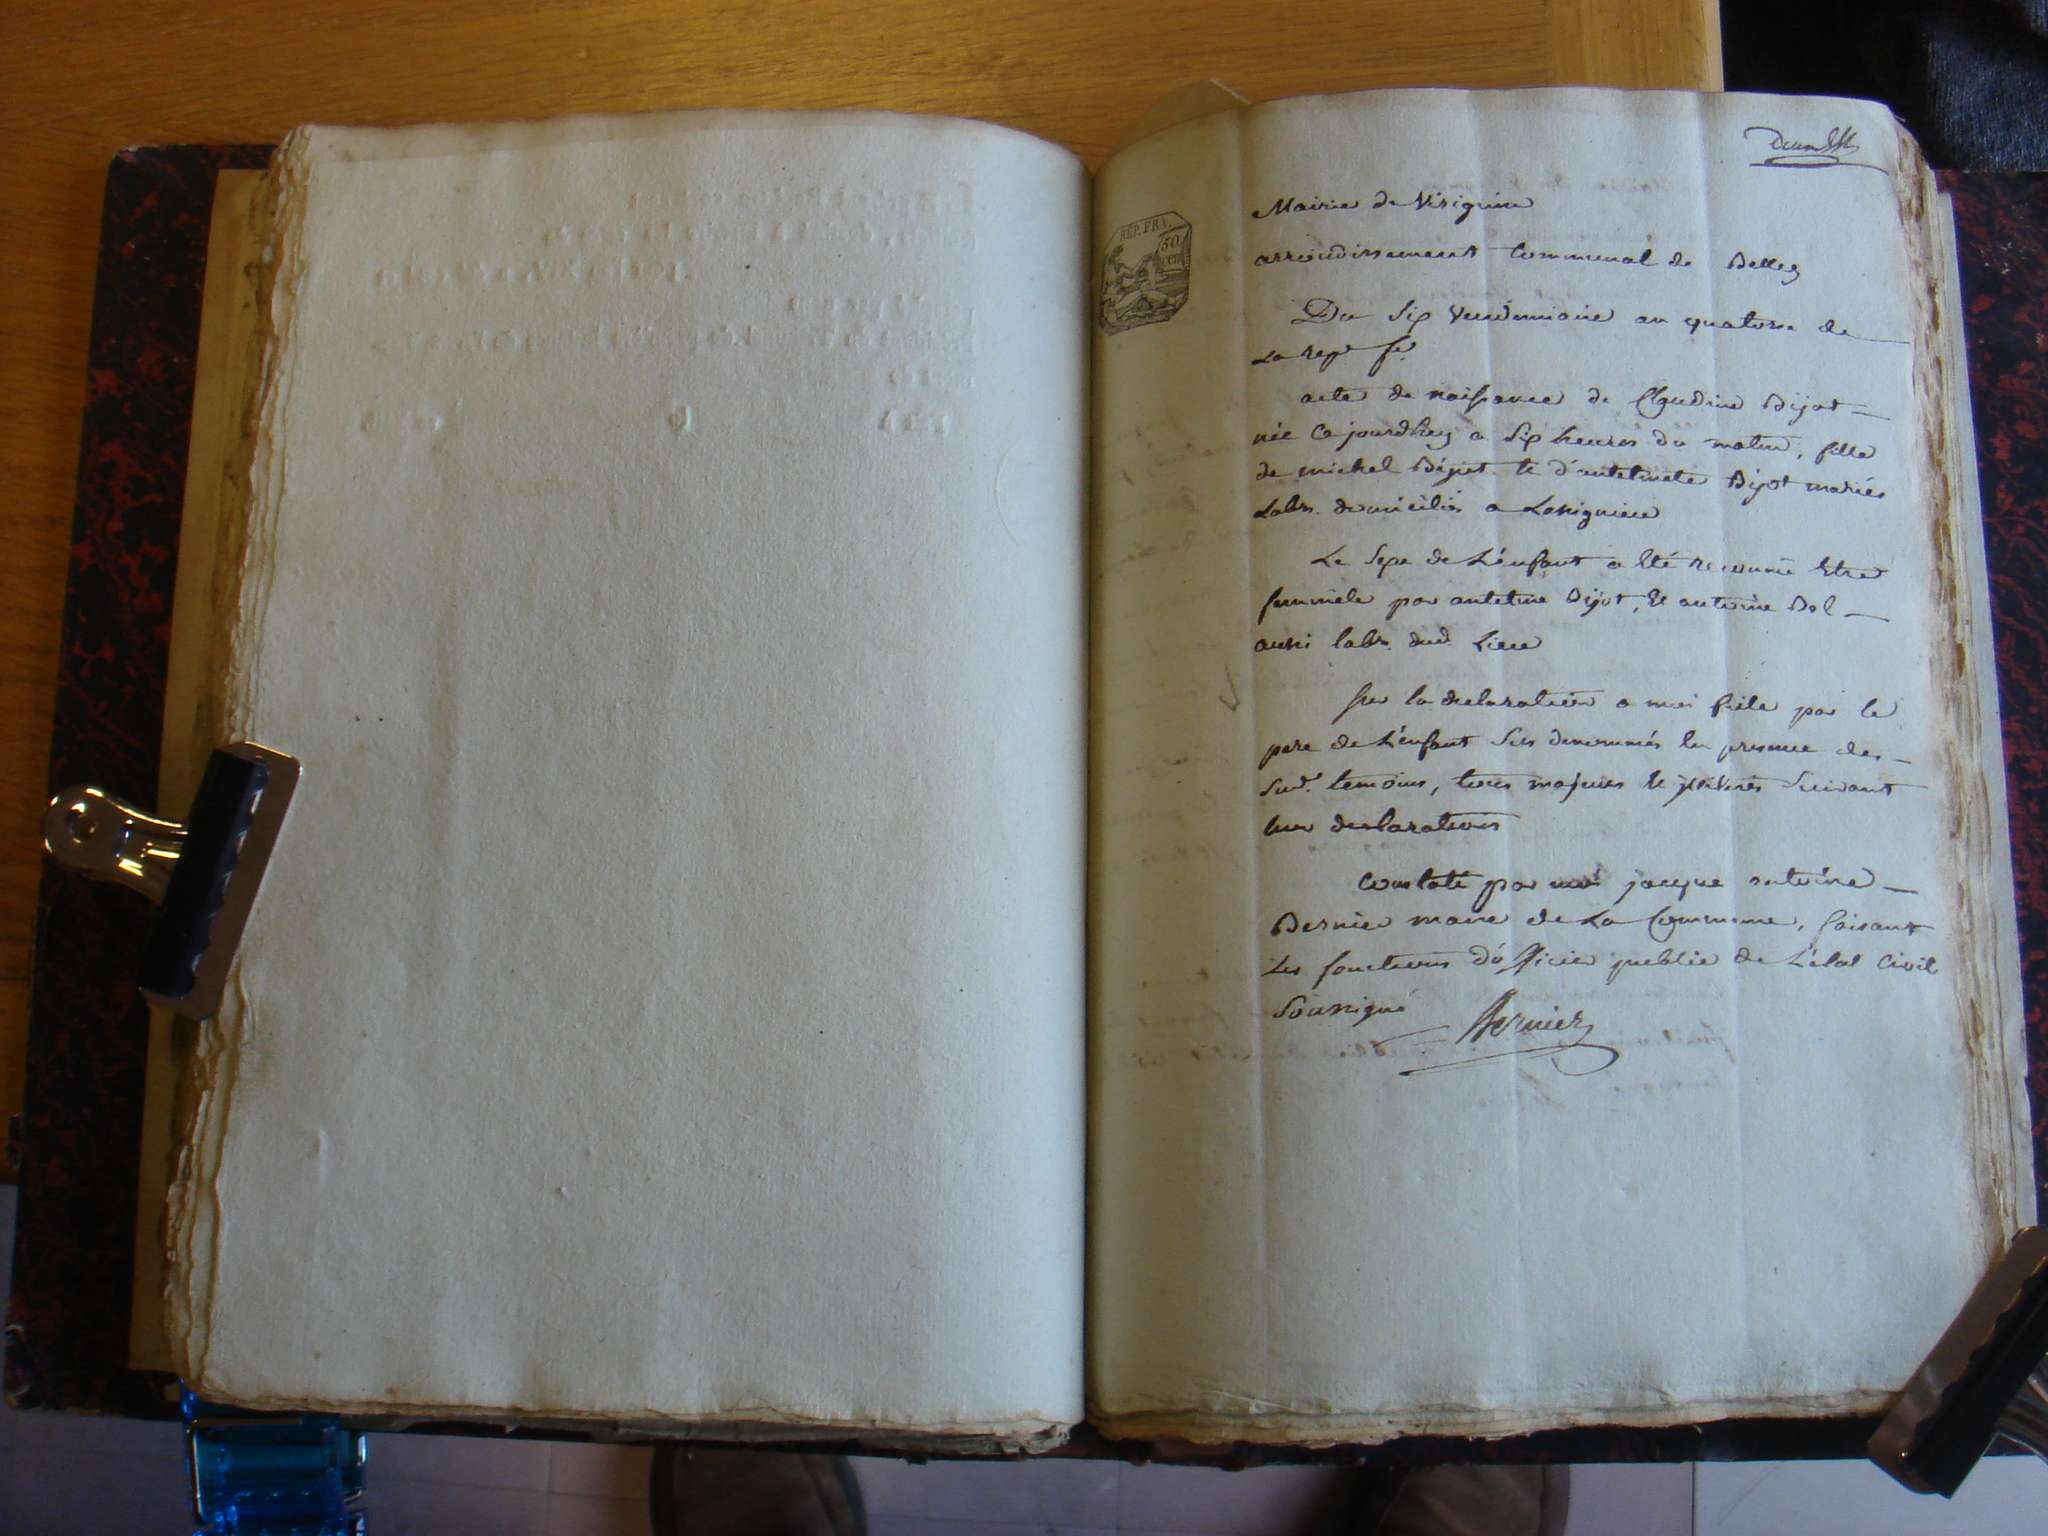 REP. FRA.
50
cen
Mairie de Virignin
arrondissement Communal de Belley
Du six Vendemiaire an quatorze de
La repe fse
acte de naissance de Claudine Bijot
née Cejourdhuy a six heures du matin, fille
de michel Bijot et d'antelmete Bijot mariés
Labrs. domiciliés a
Le sexe de L'enfant a eté reconnu Etre
femmele par antelme Bijot, Et antoine Bol
aussi labrs. dud. Lieu
sur la declaration a moi faite par le
pere de L'enfant sus denommés En presence des
sud. temoins, tous majeurs Et suivant
leur declarations
Constaté par moi jacque antoine
Bernier maire de La Commune, faisant
Les fonctions d'officier public de L'état Civil
soussigné
Bernier